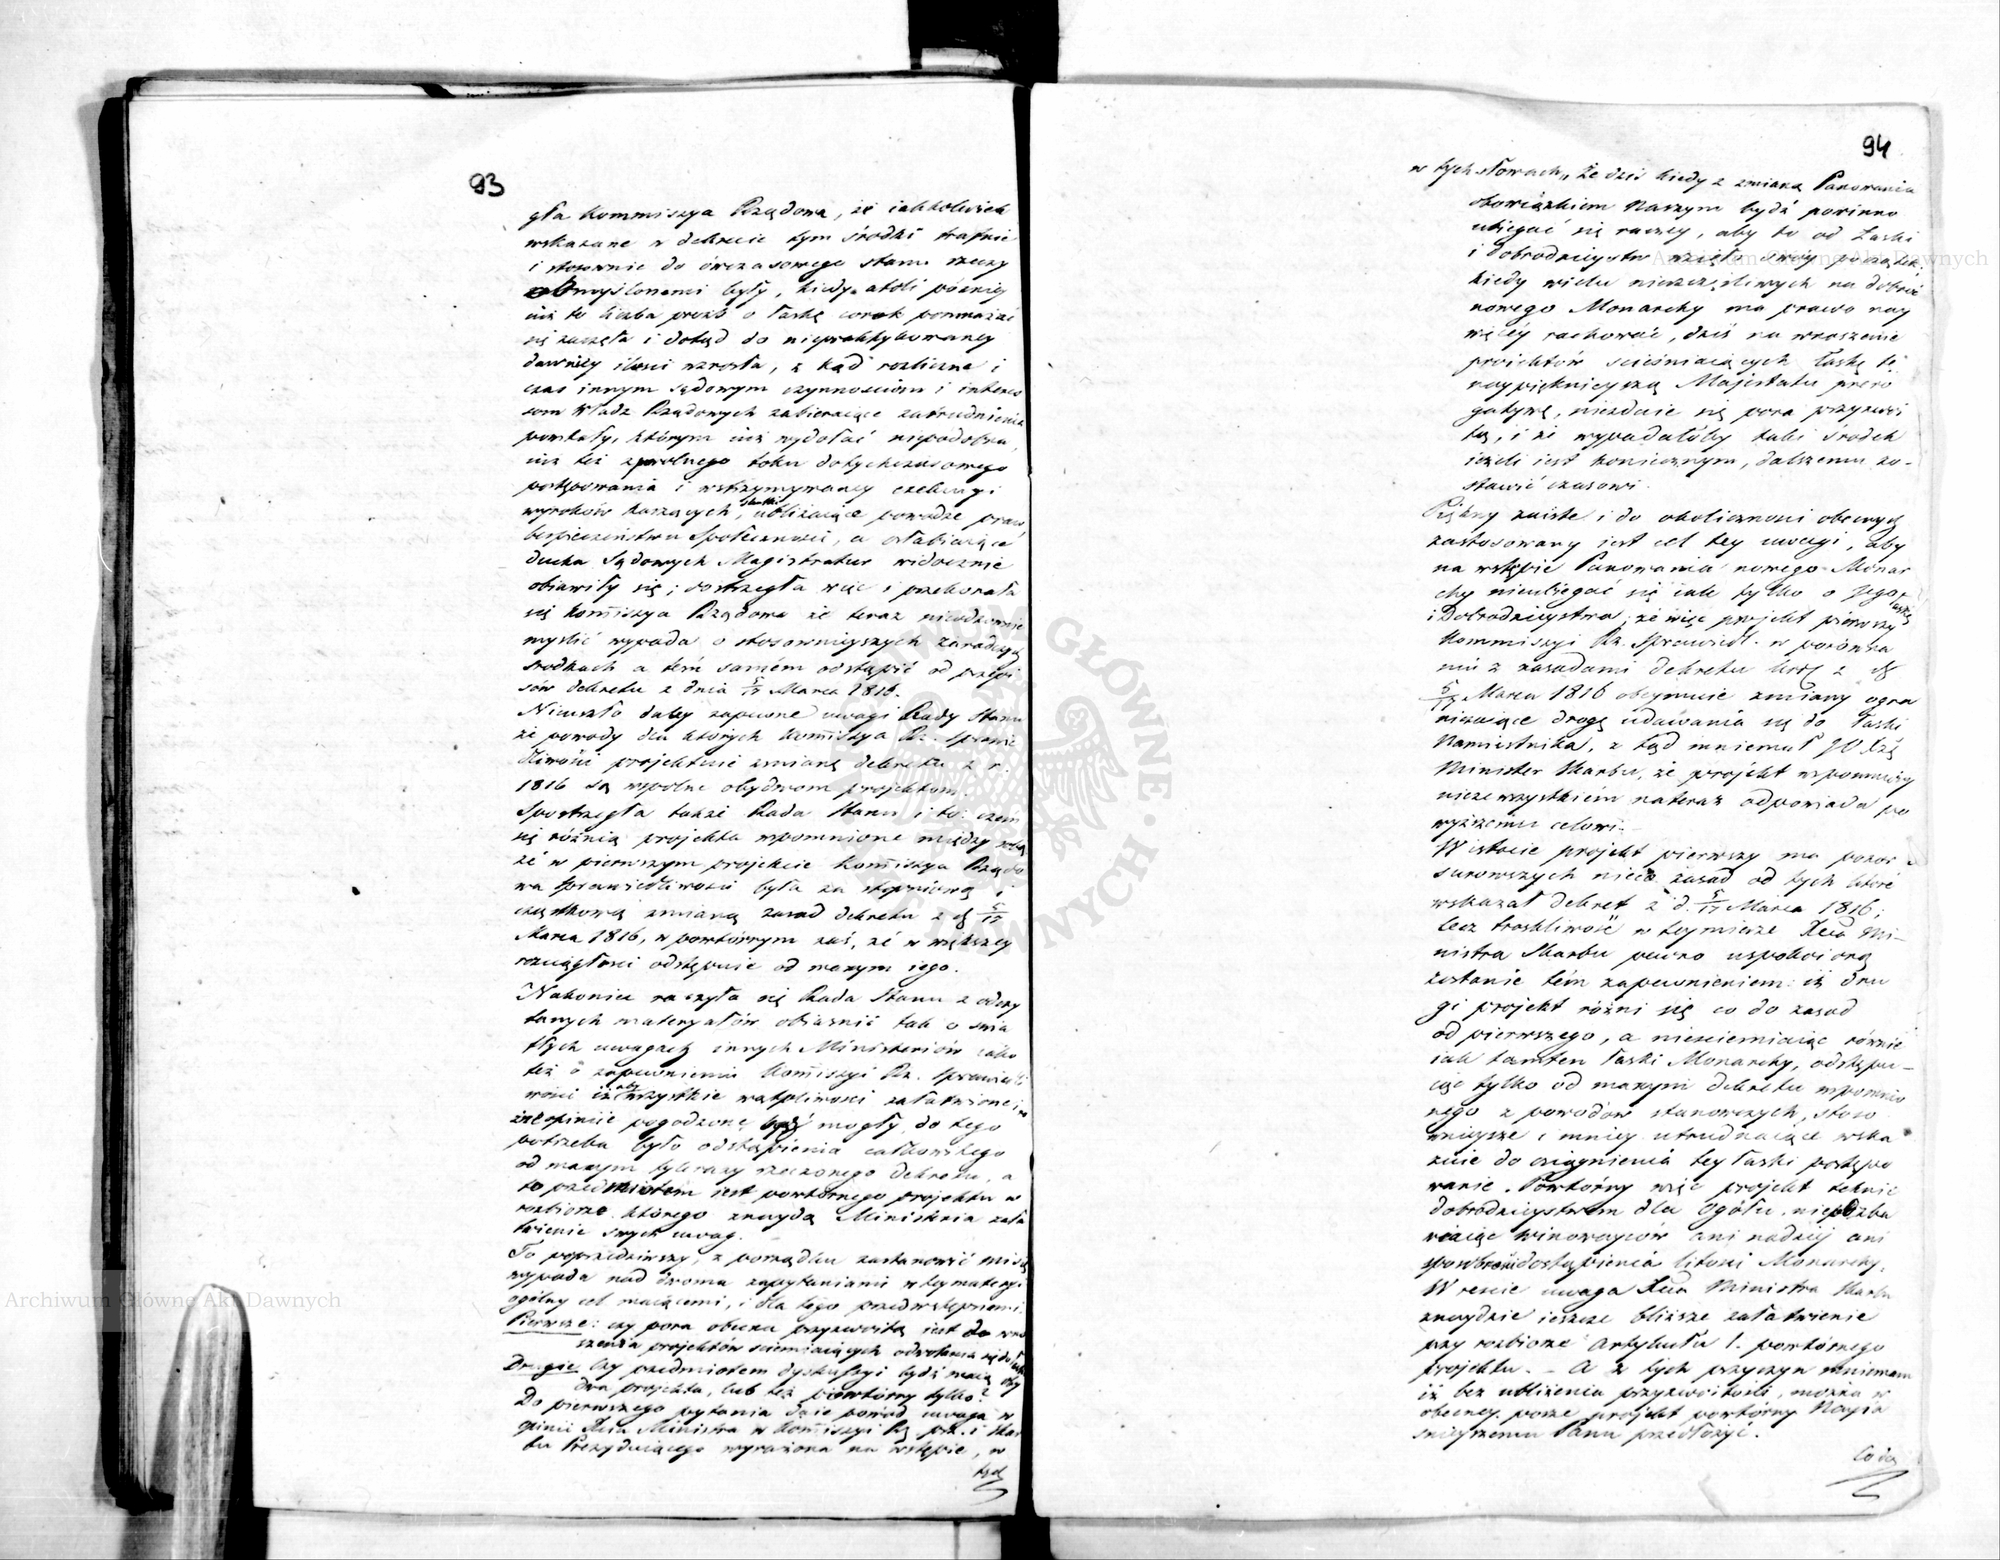 93
gła Kommissya Rządowa, że iakkolwiek
wskazane w dekrecie tym środki trafnie
i stosownie do ówczasowego stanu rzeczy
obmyślonemi były, kiedy atoli później
iuż to liczba prożb o łaskę corok pomnażać
się zaczęła i dotąd do niepraktykowaney
dawniey ilości wzrosła, z kąd rozliczne i
czas innym sądowym czynnościom i interes
som Władz Rządowych zabieraiące zatrudnienia
powstały, którym iuż wydołać niepodobna,
iuż też z powolnego toku dotychczasowego
postępowania i wstrzymywaney exekucyi
wyroków karzących, skutki ubliżaiące powadze praw,
bezpieczeństwu Społeczności, a osłabiaiące
ducha Sądowych Magistratur widocznie
obiawiły się; dostrzegła więc i przekonała
się Kommissya Rządowa że teraz nieodzownie
myślić wypada o stosownieyszych zaradczych
środkach a tém samém odstąpić od przepi
sów dekretu z dnia 5/17 Marca 1816.
Nieuszło daley zapewne uwagi Rady Stanu
że powody dla których Kommissya Rz. Sprawie
dliwości projektuie zmianę dekretu z r.
1816 są wpólne obydwom projektom.
Spostrzegła także Rada Stanu i to: czem
się różnią projekta wpomnione między sobą
że w pierwszym projekcie Kommissya Rządo
wa Sprawiedliwości była za stopniową i
cząstkową zmianą zasad dekretu z d 5/17
Marca 1816, w powtórnym zaś, że w większey
rozciągłości odstępuie od maxym iego.
Nakoniec raczyła się Rada Stanu z odczy
tanych materyałów obiasnić tak o świa
tłych uwagach innych Ministeriów iako
też o zapewnieniu Kommissyi Rz. Sprawiedli
wości iż aby wszystkie wątpliwości załatwione i
opiniie pogodzone bydź mogły, do tego
potrzeba było odstąpienia całkowitego
od maxym tylerazy rzeczonego dekretu, a
to przedmiotem iest powtórnego projektu w
rozbiorze którego znaydą Ministeria zała
twienie swych uwag.
To poprzedziwszy, z porządku zastanowić mi się
wypada nad dwoma zapytaniami w tey materyi
ogólny cel maiącemi, i dla tego przedwstępnemi:
Pierwsze: czy pora obecna przyzwoitą iest do wno
szenia projektów scieśniaiących odwołania się do łaski
Drugie czy przedmiotem dyskussyi bydź maią oby
dwa projekta, lub też powtórny tylko?
Do pierwszego pytania daie powód uwaga w
opinii Xcia Ministra w Kommissyi Rz. prz. i Skar
bu Prezyduiącego wyrażona na wstępie, w
tych
94
w tych słowach, "że dziś kiedy z zmianą Panowania
obowiązkiem Naszym bydź powinno
ubiegać się raczey, aby to od Łaski
i dobrodzieystw wzięło swóy początek,
kiedy wielu nieszczęśliwych na dobroć
nowego Monarchy ma prawo nay
więcey rachować, dziś na wnoszenie
projektów scieśniaiących łaskę tę
naypięknieyszą Majestatu prero
gatywę, niezdaie się pora przyzwoi
tą, i że wypadałoby taki środek
ieżeli iest koniecznym, dalszemu zo-
stawić czasowi.
Piękny zaiste i do okoliczności obecnych
zastosowany iest cel tey uwagi, aby
na wstępie Panowania nowego Monar
chy nieubiegać się iak tylko o Jego łaskę
i Dobrodzieystwa; że więc projekt pierwszy
Kommissyi Rz. Sprawiedl. w porówna
niu z zasadami dekretu Król z d
5/17 Marca 1816 obeymuie zmiany ogra
niczaiące drogę udawania się do łaski
Namiestnika, z tąd mniemał JO Xżę
Minister Skarbu, że projekt wspomniony
nieze wszystkiém nateraz odpowiada po
wyższemu celowi.
W istocie projekt pierwszy ma pozor
surowszych nieco zasad od tych które
wskazał dekret z d. 5/17 Marca 1816;
lecz troskliwość w tey mierze Xcia Mi-
nistra Skarbu pewno uspokoioną
zostanie tém zapewnieniem: iż dru
gi projekt różni się co do zasad
od pierwszego, a niescieśniaiąc równie
iak tamten łaski Monarchy, odstępu-
iąc tylko od maxym dekretu wpomnio
nego z powodów stanowczych, stoso
wnieysze i mniey utrudniaiące wska
zuie do osiągnienia tey łaski postępo
wanie. Powtórny więc projekt tchnie
dobrodzieystwem dla ogółu, niepozba
wiaiąc winowayców ani nadziei ani
sposobności dostąpienia litości Monarchy.
W reście uwaga Xcia Ministra Skarbu
znaydzie ieszcze bliższe załatwienie
przy rozbiorze Artykułu 1. powtórnego
projektu. — A z tych przyczyn mniemam
iż bez ubliżenia przyzwoitości, można w
obecney porze projekt powtórny Nayia
śnieyszemu Panu przedłożyć.
Co do